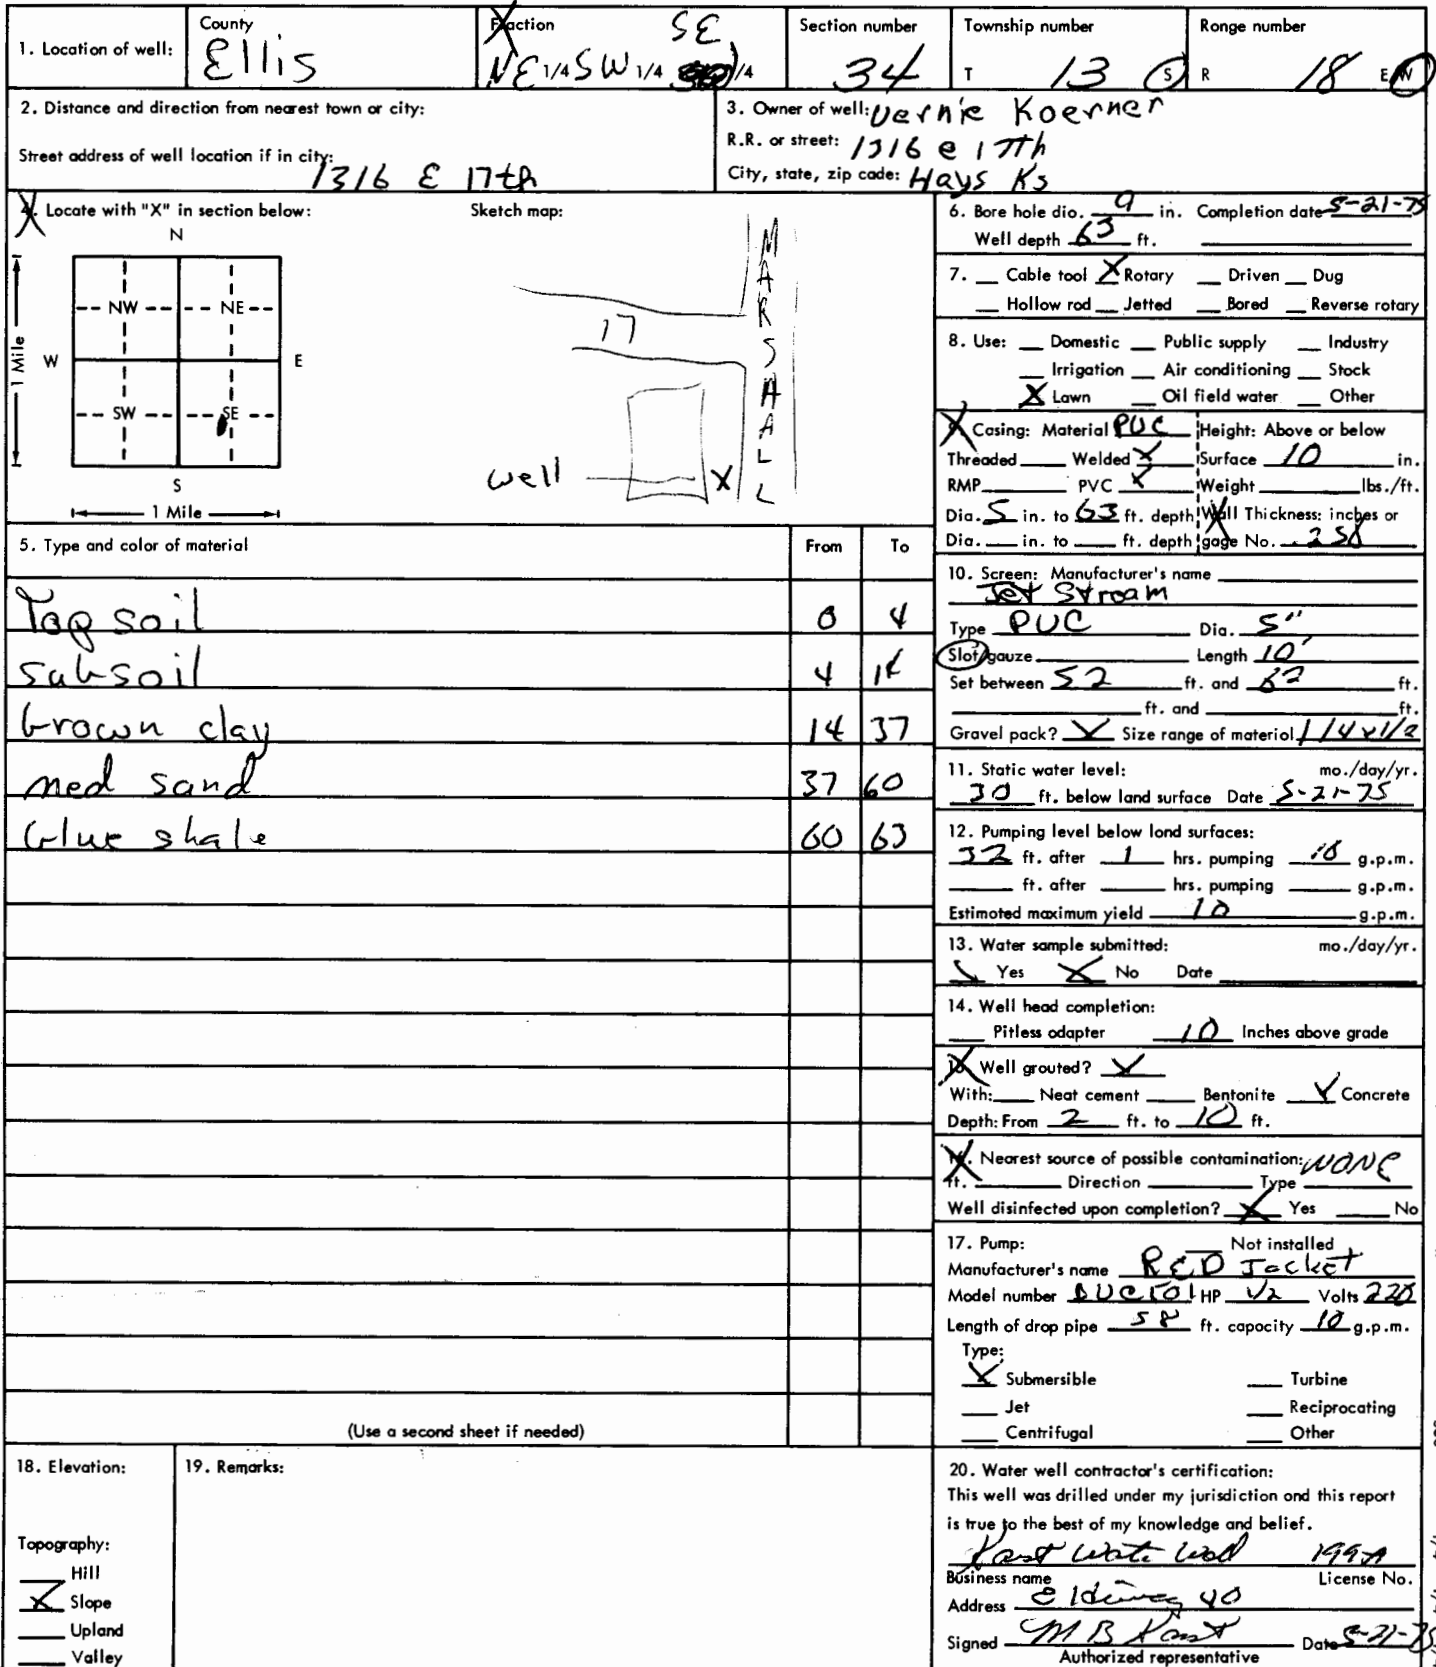 1. Location of well:
County
Ellis
Fraction
SE
NE 1/4 SW 1/4 1/4
Section number
34
Township number
T 13 S
Ronge number
R 18 E W
2. Distance and direction from nearest town or city:
Street address of well location if in city:
1316 E 17th
3. Owner of well: Vernie Koerner
R.R. or street: 1316 e 17th
City, state, zip code: Hays Ks
4. Locate with "X" in section below:
Sketch map:
N
NW NE
W E
SW SE
S
1 Mile
1 Mile
17
MARSHALL
well X
5. Type and color of material From To
Top soil 0 4
subsoil 4 14
brown clay 14 37
med sand 37 60
blue shale 60 63
(Use a second sheet if needed)
6. Bore hole dio. 9 in. Completion date 5-21-75
Well depth 63 ft.
7. Cable tool X Rotary Driven Dug
Hollow rod Jetted Bored Reverse rotary
8. Use: Domestic Public supply Industry
Irrigation Air conditioning Stock
X Lawn Oil field water Other
9. Casing: Material PVC Height: Above or below
Threaded Welded X Surface 10 in.
RMP PVC X Weight lbs./ft.
Dia. 5 in. to 63 ft. depth Wall Thickness: inches or
Dia. in. to ft. depth gage No. .258
10. Screen: Manufacturer's name
Jet Stream
Type PVC Dia. 5"
Slot/gauze Length 10'
Set between 52 ft. and 62 ft.
ft. and ft.
Gravel pack? Size range of material 1/4 x 1/2
11. Static water level: mo./day/yr.
30 ft. below land surface Date 5-21-75
12. Pumping level below lond surfaces:
32 ft. after 1 hrs. pumping 10 g.p.m.
ft. after hrs. pumping g.p.m.
Estimoted maximum yield 10 g.p.m.
13. Water sample submitted: mo./day/yr.
Yes X No Date
14. Well head completion:
Pitless odapter 10 Inches above grade
15. Well grouted?
With: Neat cement Bentonite Concrete
Depth: From 2 ft. to 10 ft.
16. Nearest source of possible contamination: NONE
ft. Direction Type
Well disinfected upon completion? X Yes No
17. Pump: Not installed
Manufacturer's name RED Jacket
Model number HP 1/2 Volts 220
Length of drop pipe 58 ft. capacity 10 g.p.m.
Type:
X Submersible Turbine
Jet Reciprocating
Centrifugal Other
18. Elevation:
Topography:
Hill
X Slope
Upland
Valley
19. Remarks:
20. Water well contractor's certification:
This well was drilled under my jurisdiction ond this report
is true to the best of my knowledge and belief.
Kast Water Well 199A
Business name License No.
Address 40
Signed M B Kast Date 5-21-75
Authorized representative